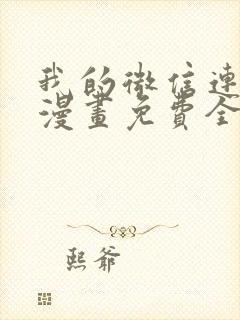 我的微信連
漫畫免費全
熙爺